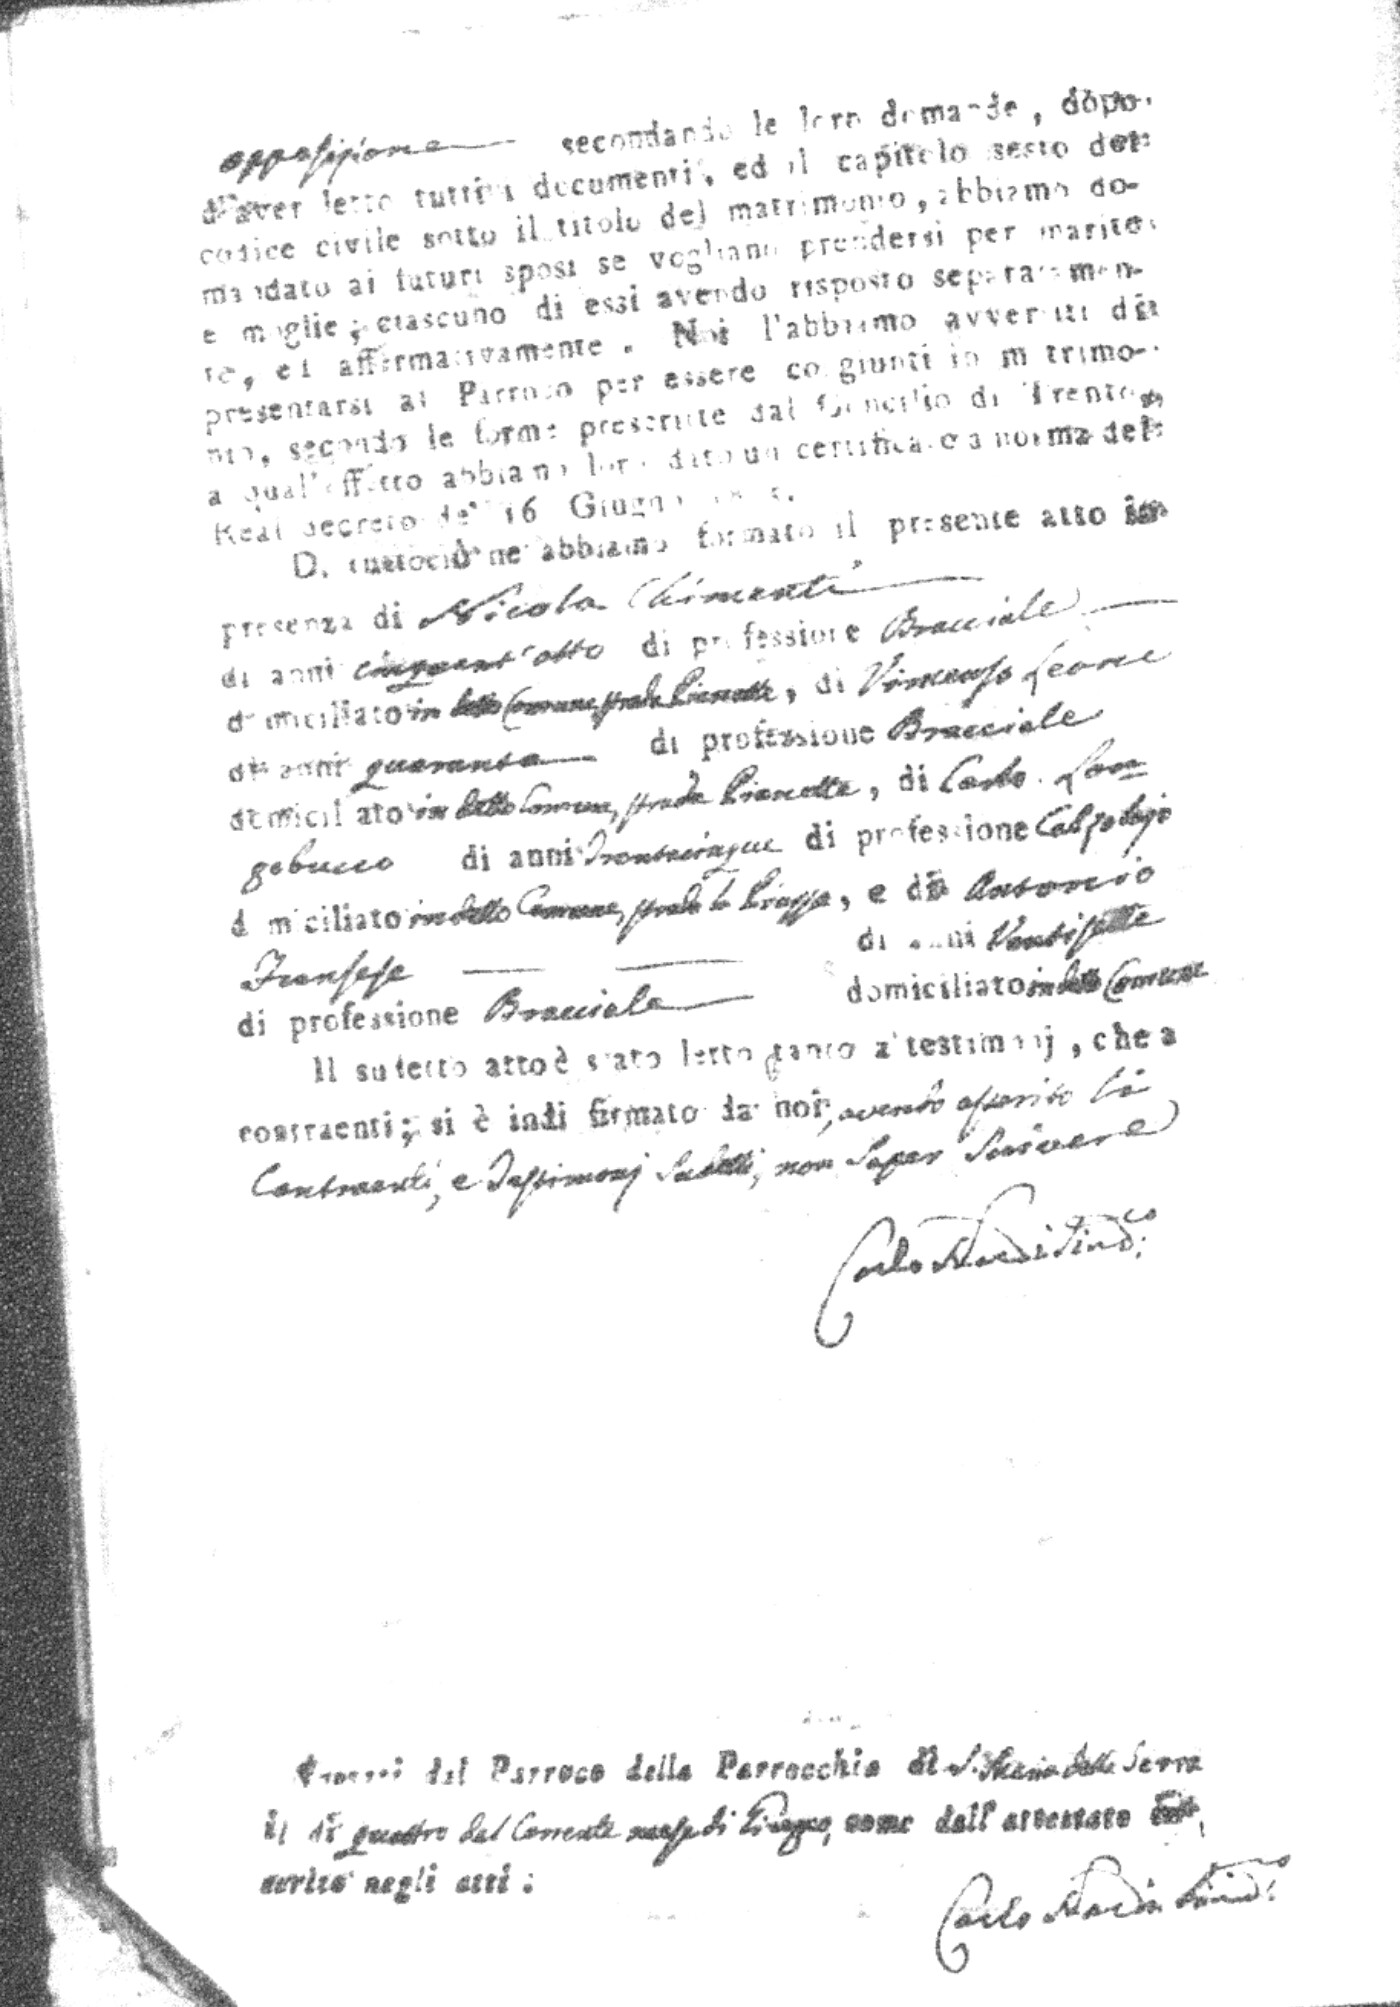 opposizione secondando le loro domande, dopo
d'aver letto tutti i documenti, ed il capitolo sesto del
codice civile sotto il titolo del matrimonio, abbiamo do-
mandato ai futuri sposi se vogliano prendersi per marito
e moglie; ciascuno di essi avendo risposto separatamen-
te, ed affermativamente. Noi l'abbiamo avvertiti di
presentarsi al Parroco per essere congiunti in matrimo-
nio, secondo le forme prescritte dal Concilio di Trento,
a qual'effetto abbiamo loro dato un certificato a norma del
Real decreto de' 16 Giugno
Di tuttociò ne abbiamo formato il presente atto in
presenza di Nicola Chimenti
di anni cinquant'otto di professione Bracciale
domiciliato in detto Comune strada Pianette, di Vincenzo Leone
di anni quaranta di professione Bracciale
domiciliato in detto Comune, strada Pianette, di Carlo Lon=
gobucco di anni Trentacinque di professione Calzolajo
domiciliato in detto Comune, strada la Piazza, e di Antonio
di anni Ventisette
di professione Bracciale domiciliato in detto Comune
Il sudetto atto è stato letto tanto a' testimonj, che a
contraenti; si è indi firmato da noi, avendo asserito li
Contraenti, e Testimonj Sudetti, non Saper Scrivere
Carlo Sind.co
dal Parroco della Parrocchia di S. Maria della Serra
il dì quattro del Corrente mese di Giugno, come dall'attestato in-
serito negli atti.
Carlo